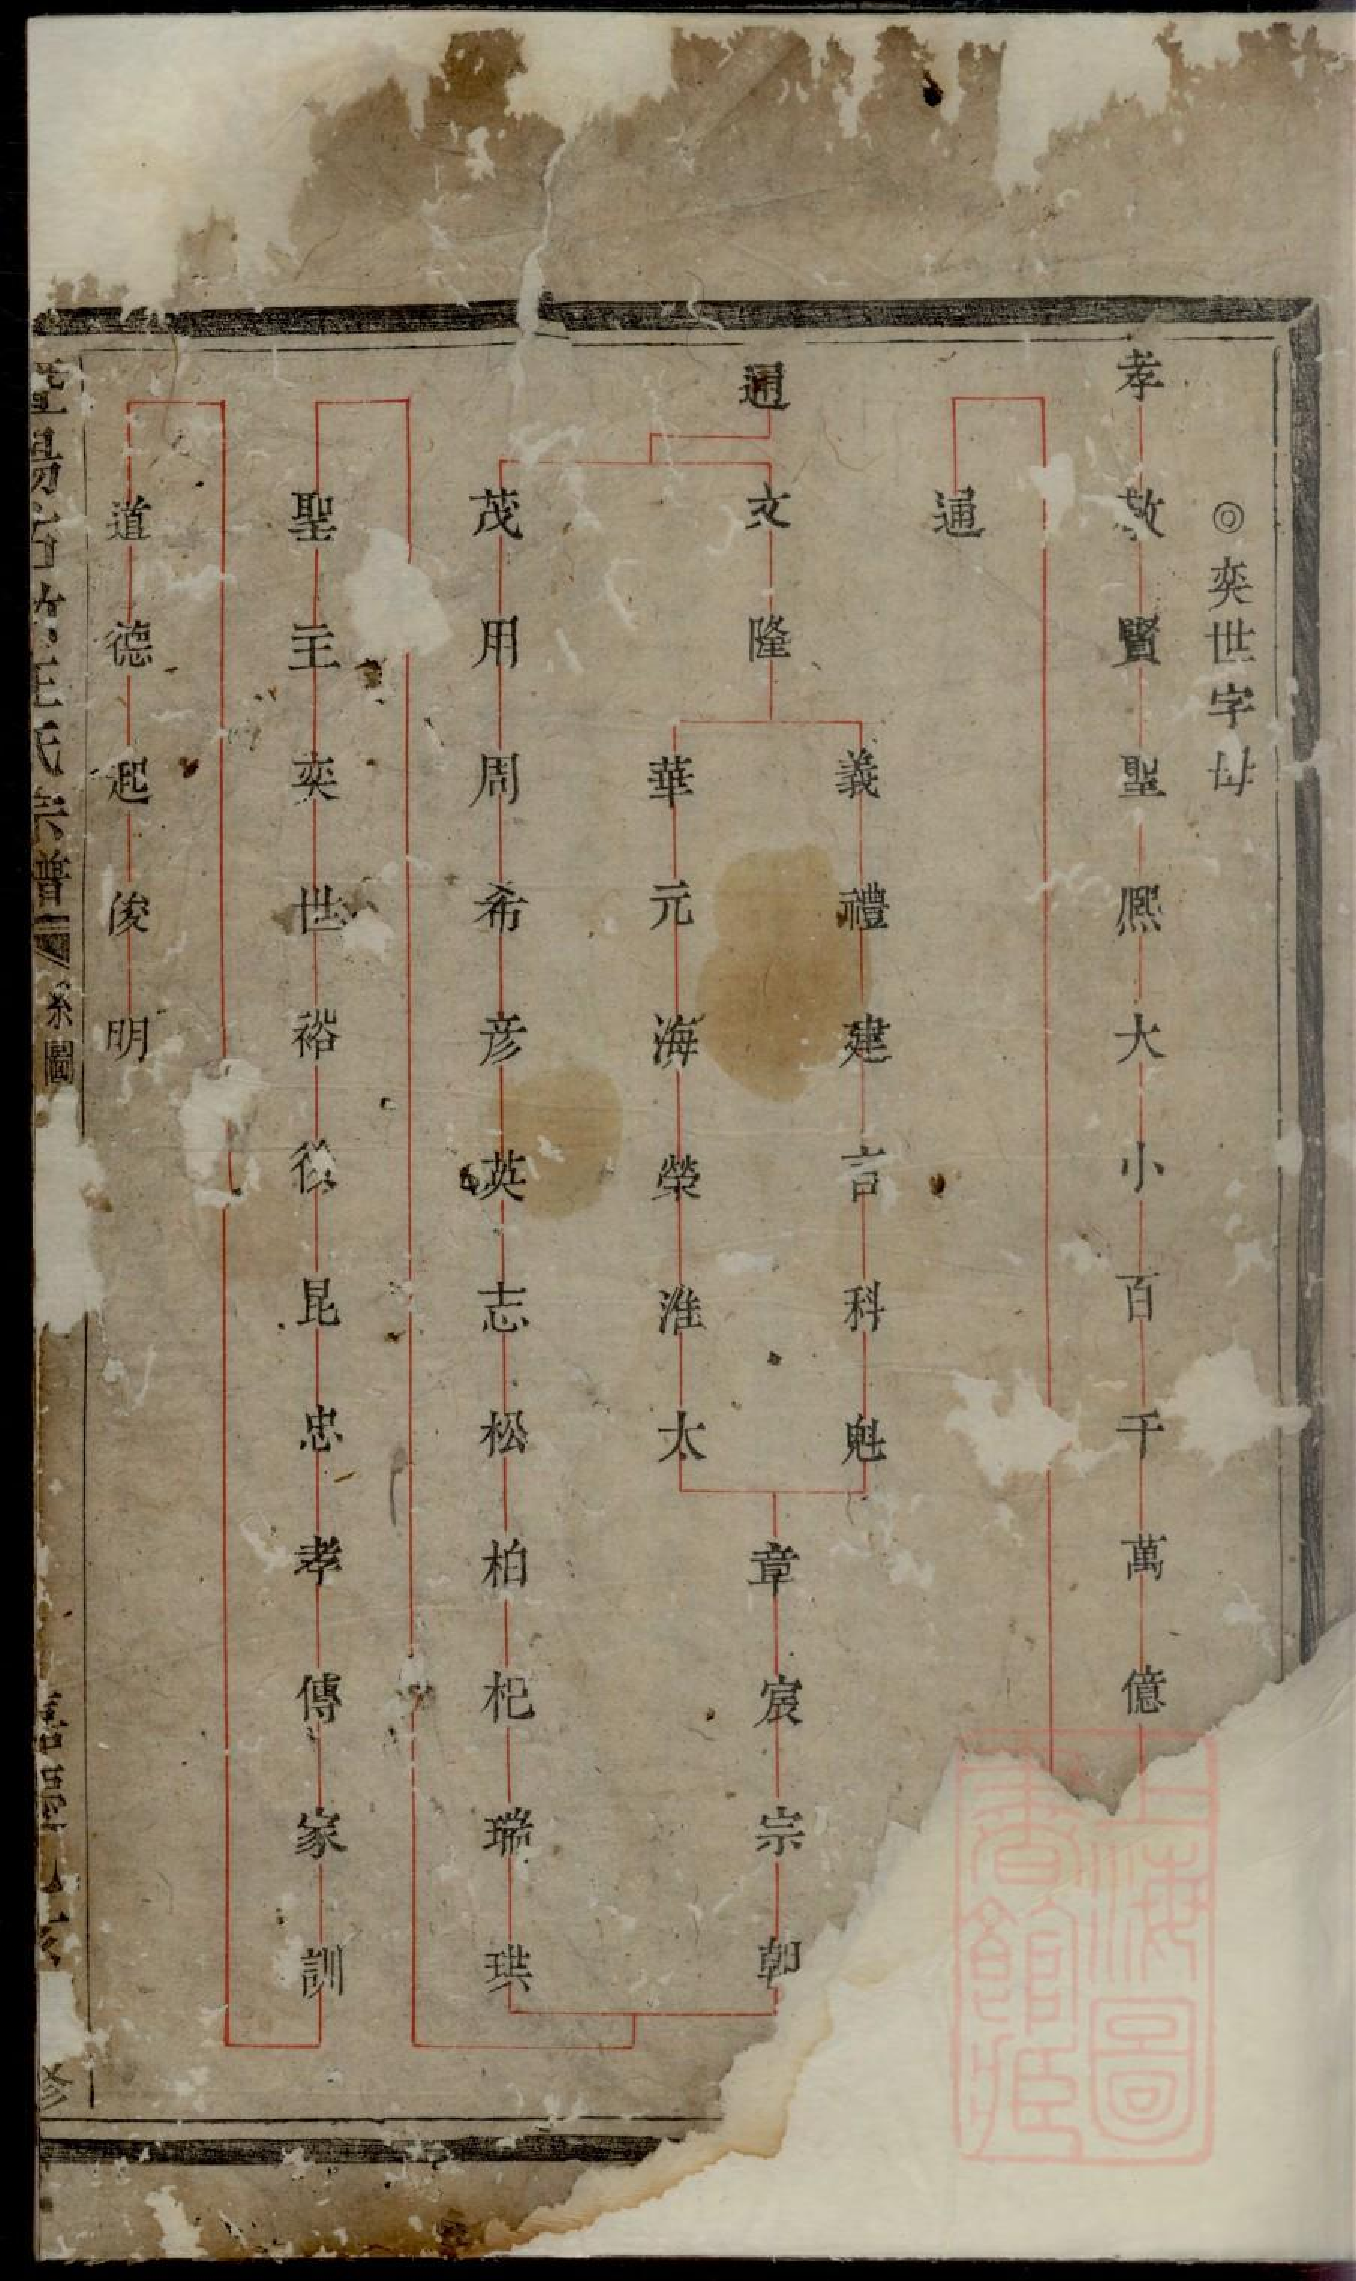 ◎奕世字母
孝敬賢聖熙大小百千萬億
通
通
文隆
義禮建言科魁
華元海榮淮太
章宸宗朝
茂用周希彦英志松柏杞瑞珙
聖主奕世裕後昆忠孝傳家訓
道德起俊明
王氏宗譜
系圖
修
上海圖
書館藏